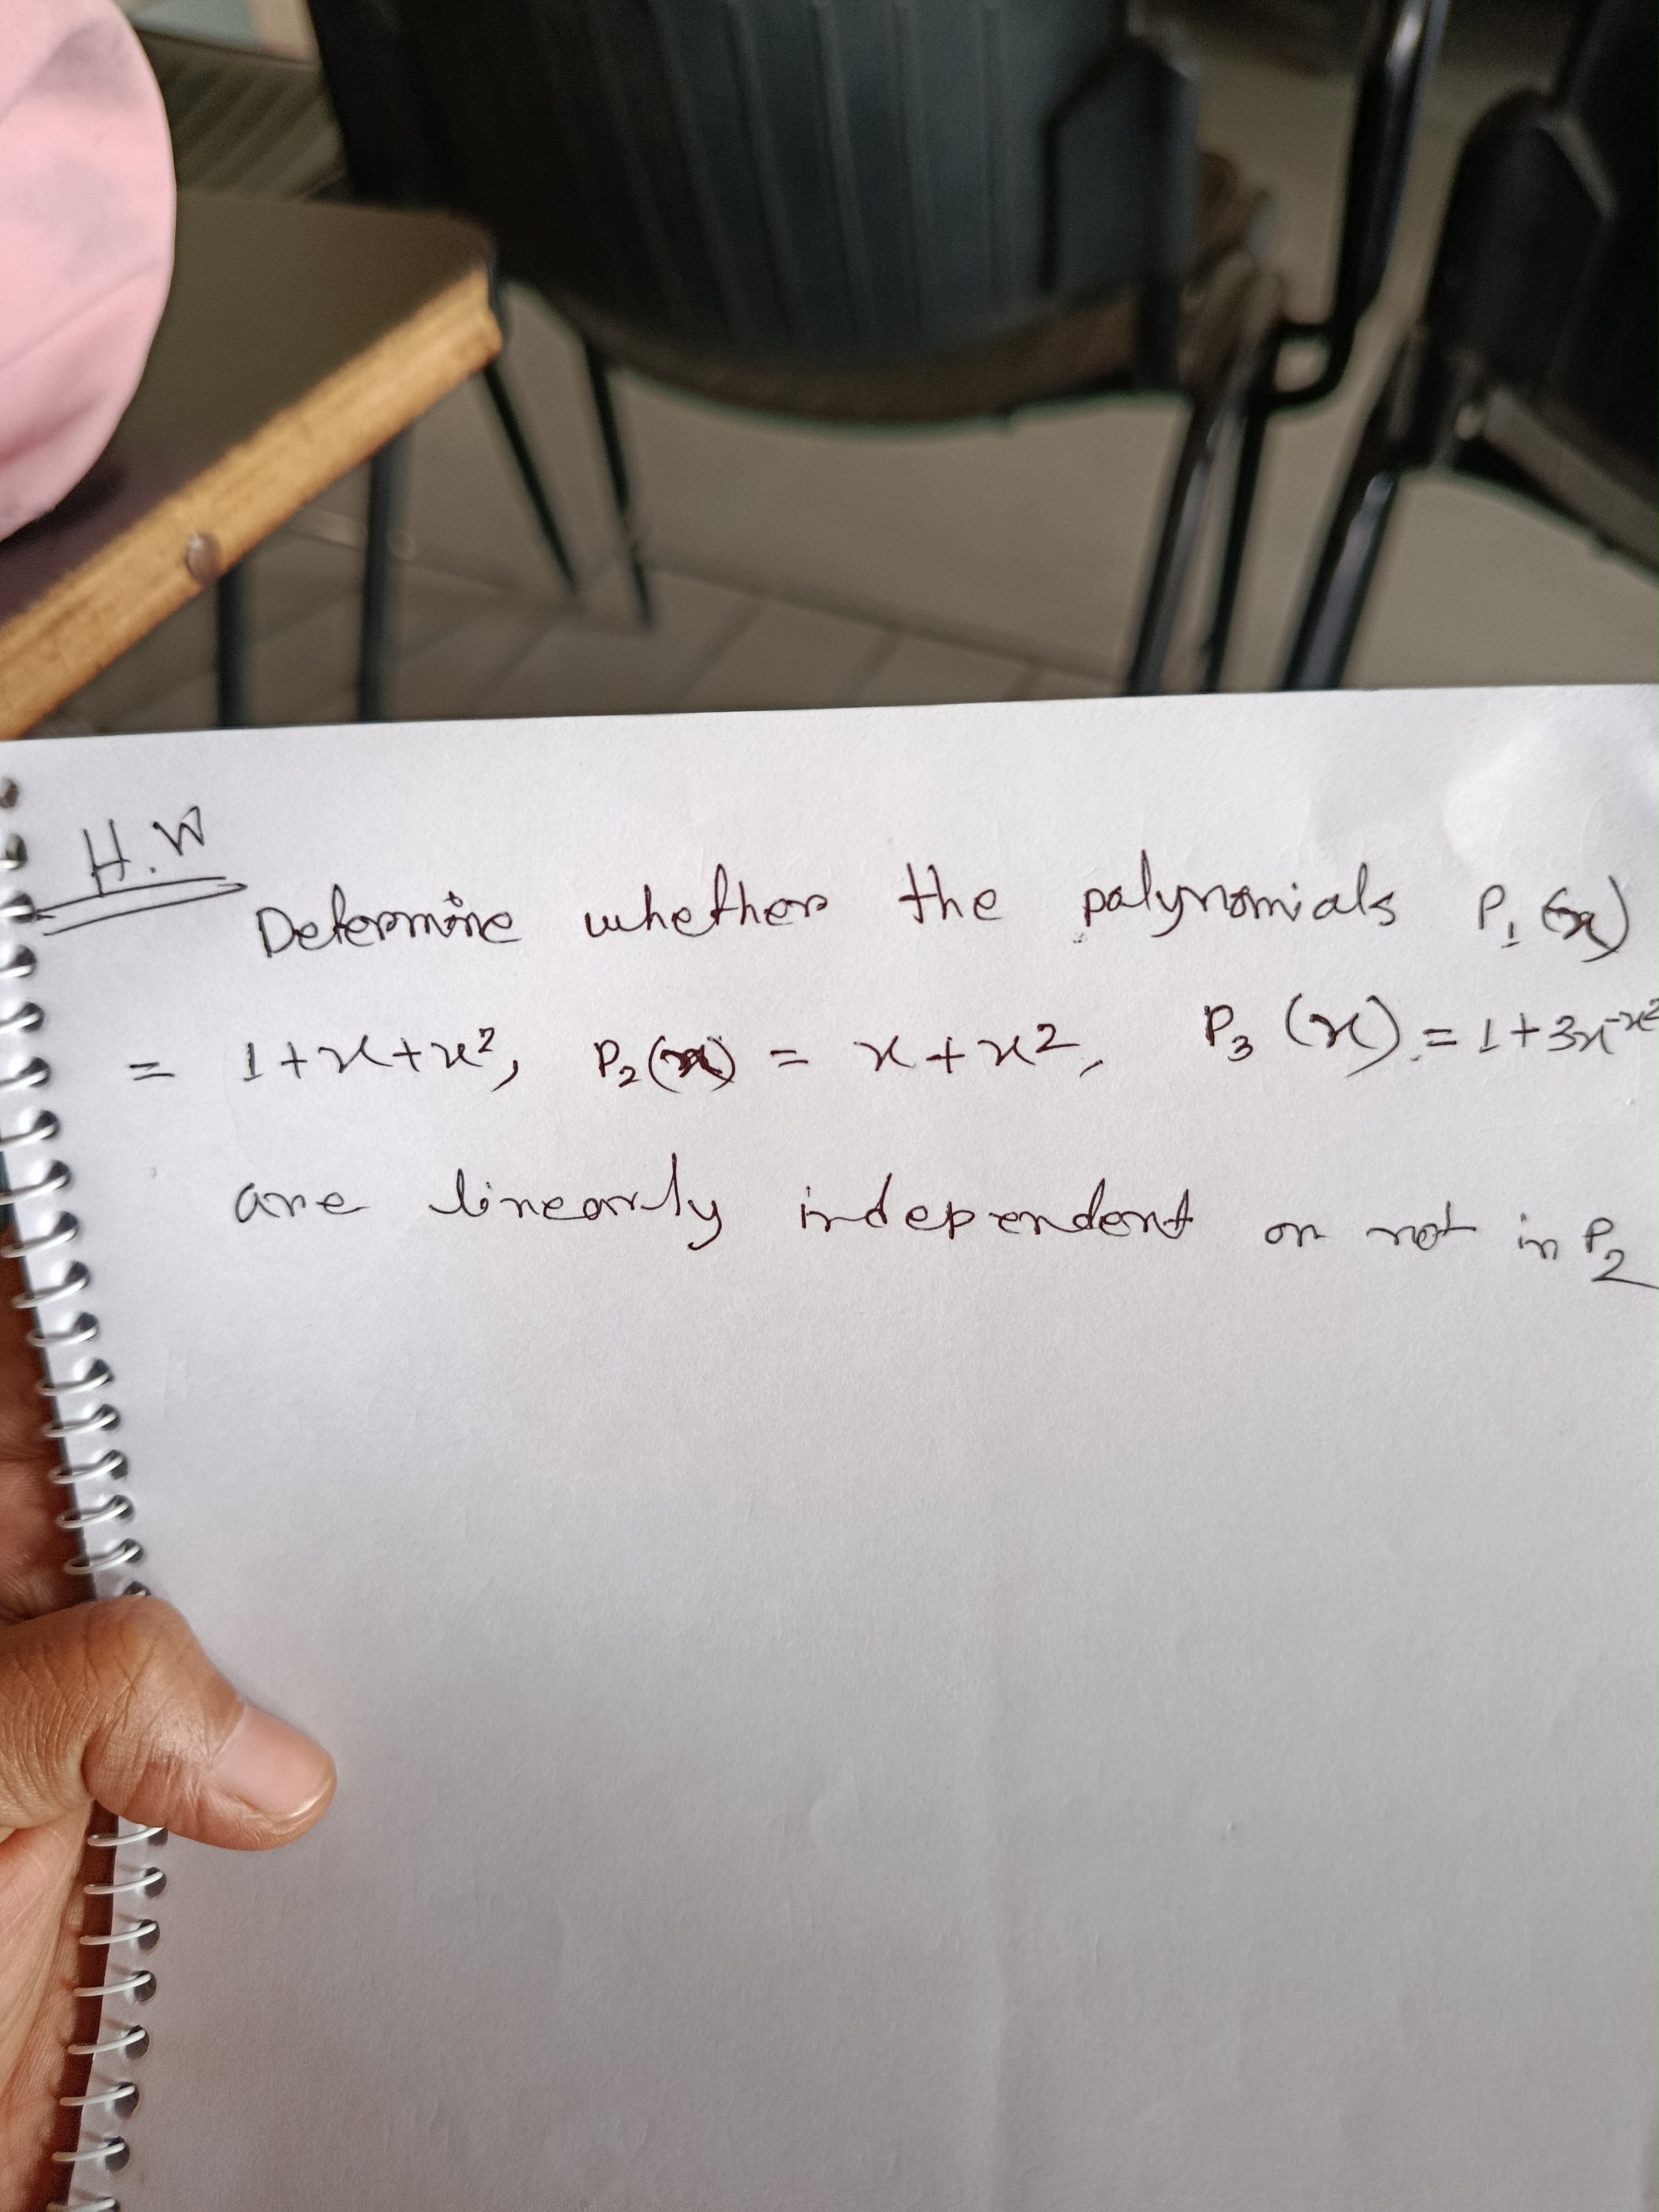 H.W
Determine whether the polynomials P₁(x)
= 1+x+x², P₂(x) = x+x², P₃(x) = 1+3x-x²
are linearly independent or not in P₂